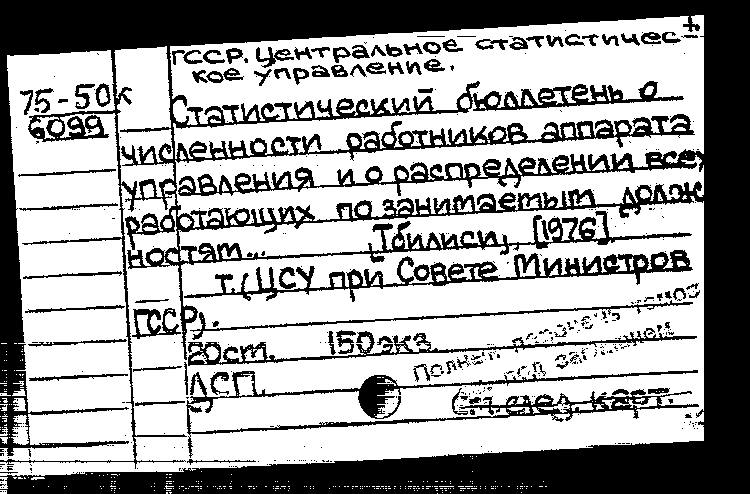 ГССР. Центральное статистичес-
кое управление.
75-50к
6099
Статистический бюллетень о
численности работников аппарата
управления и о распределении всех
работающих по занимаемым долж
ностям... Тбилиси, [1976]
т. (ЦСУ при Совете Министров
ГССР).
20см. 150экз.
ДСП.
Полный перечень томов
см. под заглавием
См. след. карт.